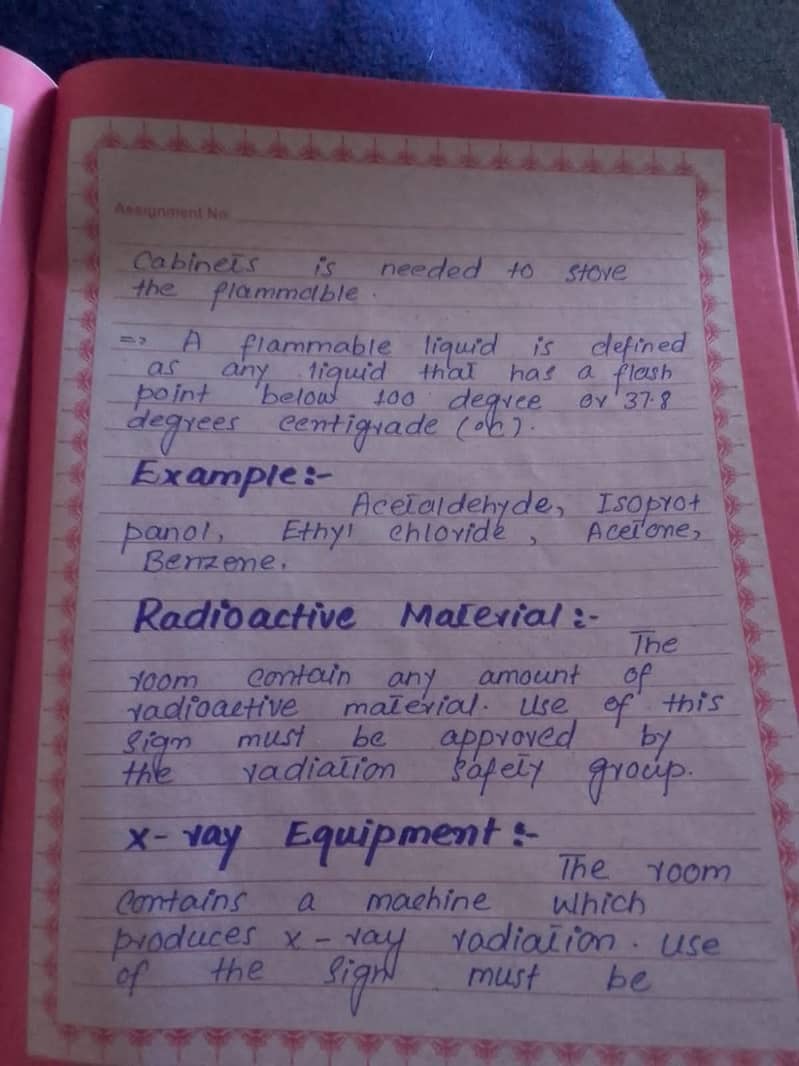 Assignment No
Cabinets is needed to store
the flammalble.
=> A flammable liquid is defined
as any liquid that has a flash
point below 100 degree or 37.8
degrees centigrade (oc).
Example:-
Acetaldehyde, Isoprot
panol, Ethyl chloride, Acetone,
Benzene.
Radioactive Material:-
The
room contain any amount of
radioactive material. Use of this
sign must be approved by
the radiation safety group.
x-ray Equipment:-
The room
contains a machine which
produces x-ray radiation. use
of the sign must be